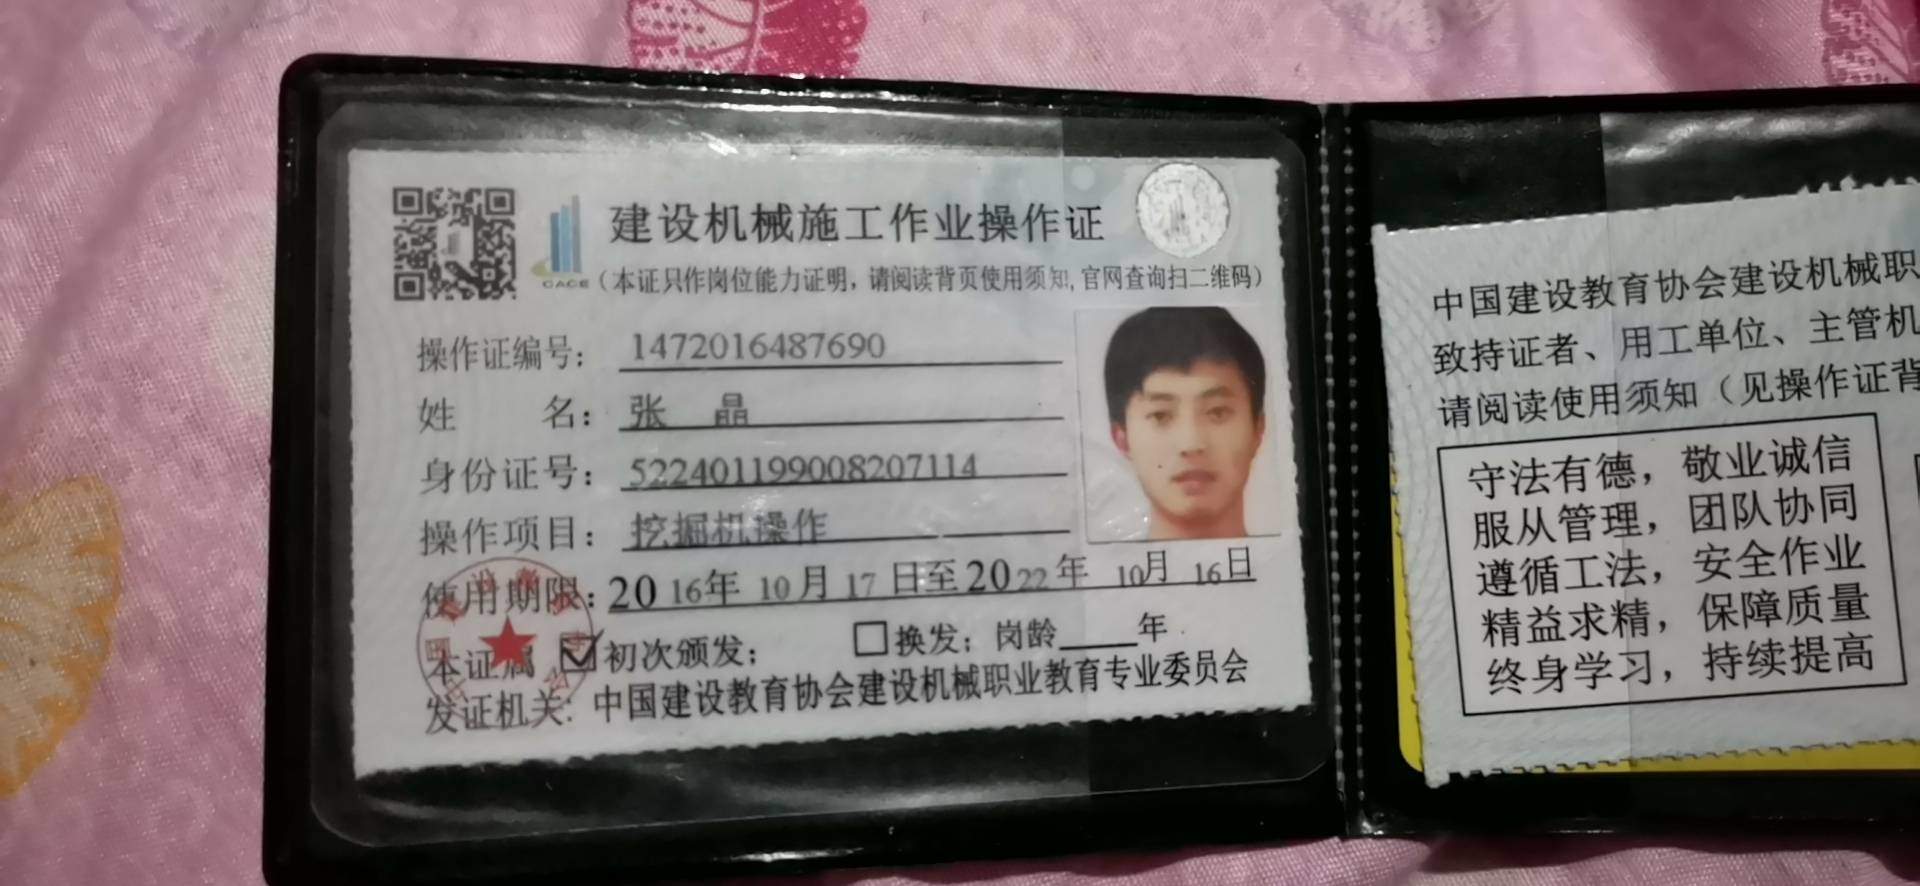 建设机械施工作业操作证
CACE
（本证只作岗位能力证明，请阅读背页使用须知,官网查询扫二维码）
操作证编号： 1472016487690
姓 名： 张 晶
身份证号： 522401199008207114
操作项目： 挖掘机操作
使用期限：2016年 10月 17日至2022年 10月 16日
本证属 ☑初次颁发； □换发；岗龄____年
发证机关：中国建设教育协会建设机械职业教育专业委员会
中国建设教育协会建设机械职
致持证者、用工单位、主管机
请阅读使用须知（见操作证背
守法有德，敬业诚信
服从管理，团队协同
遵循工法，安全作业
精益求精，保障质量
终身学习，持续提高